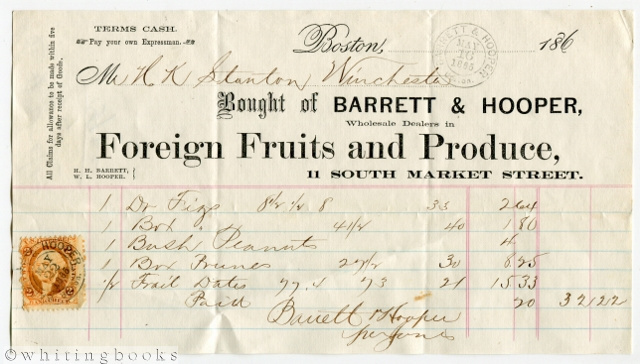 TERMS CASH.
Pay your own Expressman.
Boston, 186
BARRETT & HOOPER
MAY
1865
All Claims for allowance to be made within five
days after receipt of Goods.
Mr H K Stanton Winchester
Bought of BARRETT & HOOPER,
Wholesale Dealers in
Foreign Fruits and Produce,
H. H. BARRETT,
W. L. HOOPER,
11 SOUTH MARKET STREET.
1 Dr Figs 8 33 2 64
1 Box " 4 1/2 40 1 80
1 Bush Peanuts 4
1 Box Prunes 30 6.25
1/2 Frail Dates 77 4 73 21 15 33
Paid 20 32 22
Barrett & Hooper
per Jones
HOOPER
MAY
©whitingbooks